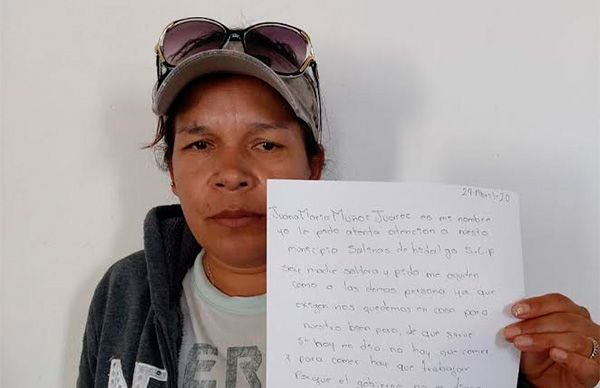 29-Abril-20
Juana María Muñoz Juarez es mi nombre
yo le pido atenta atencion a nuestro
municipio Salinas de hidalgo S.L.P
Soy madre soltera y pido me ayuden
como a las demas persona ya que
exigen nos quedemos en casa para
nuestro bien pero, de que sirve
si hoy en dia no hay que comer
y para comer hay que trabajar
Porque el gobierno no
ER